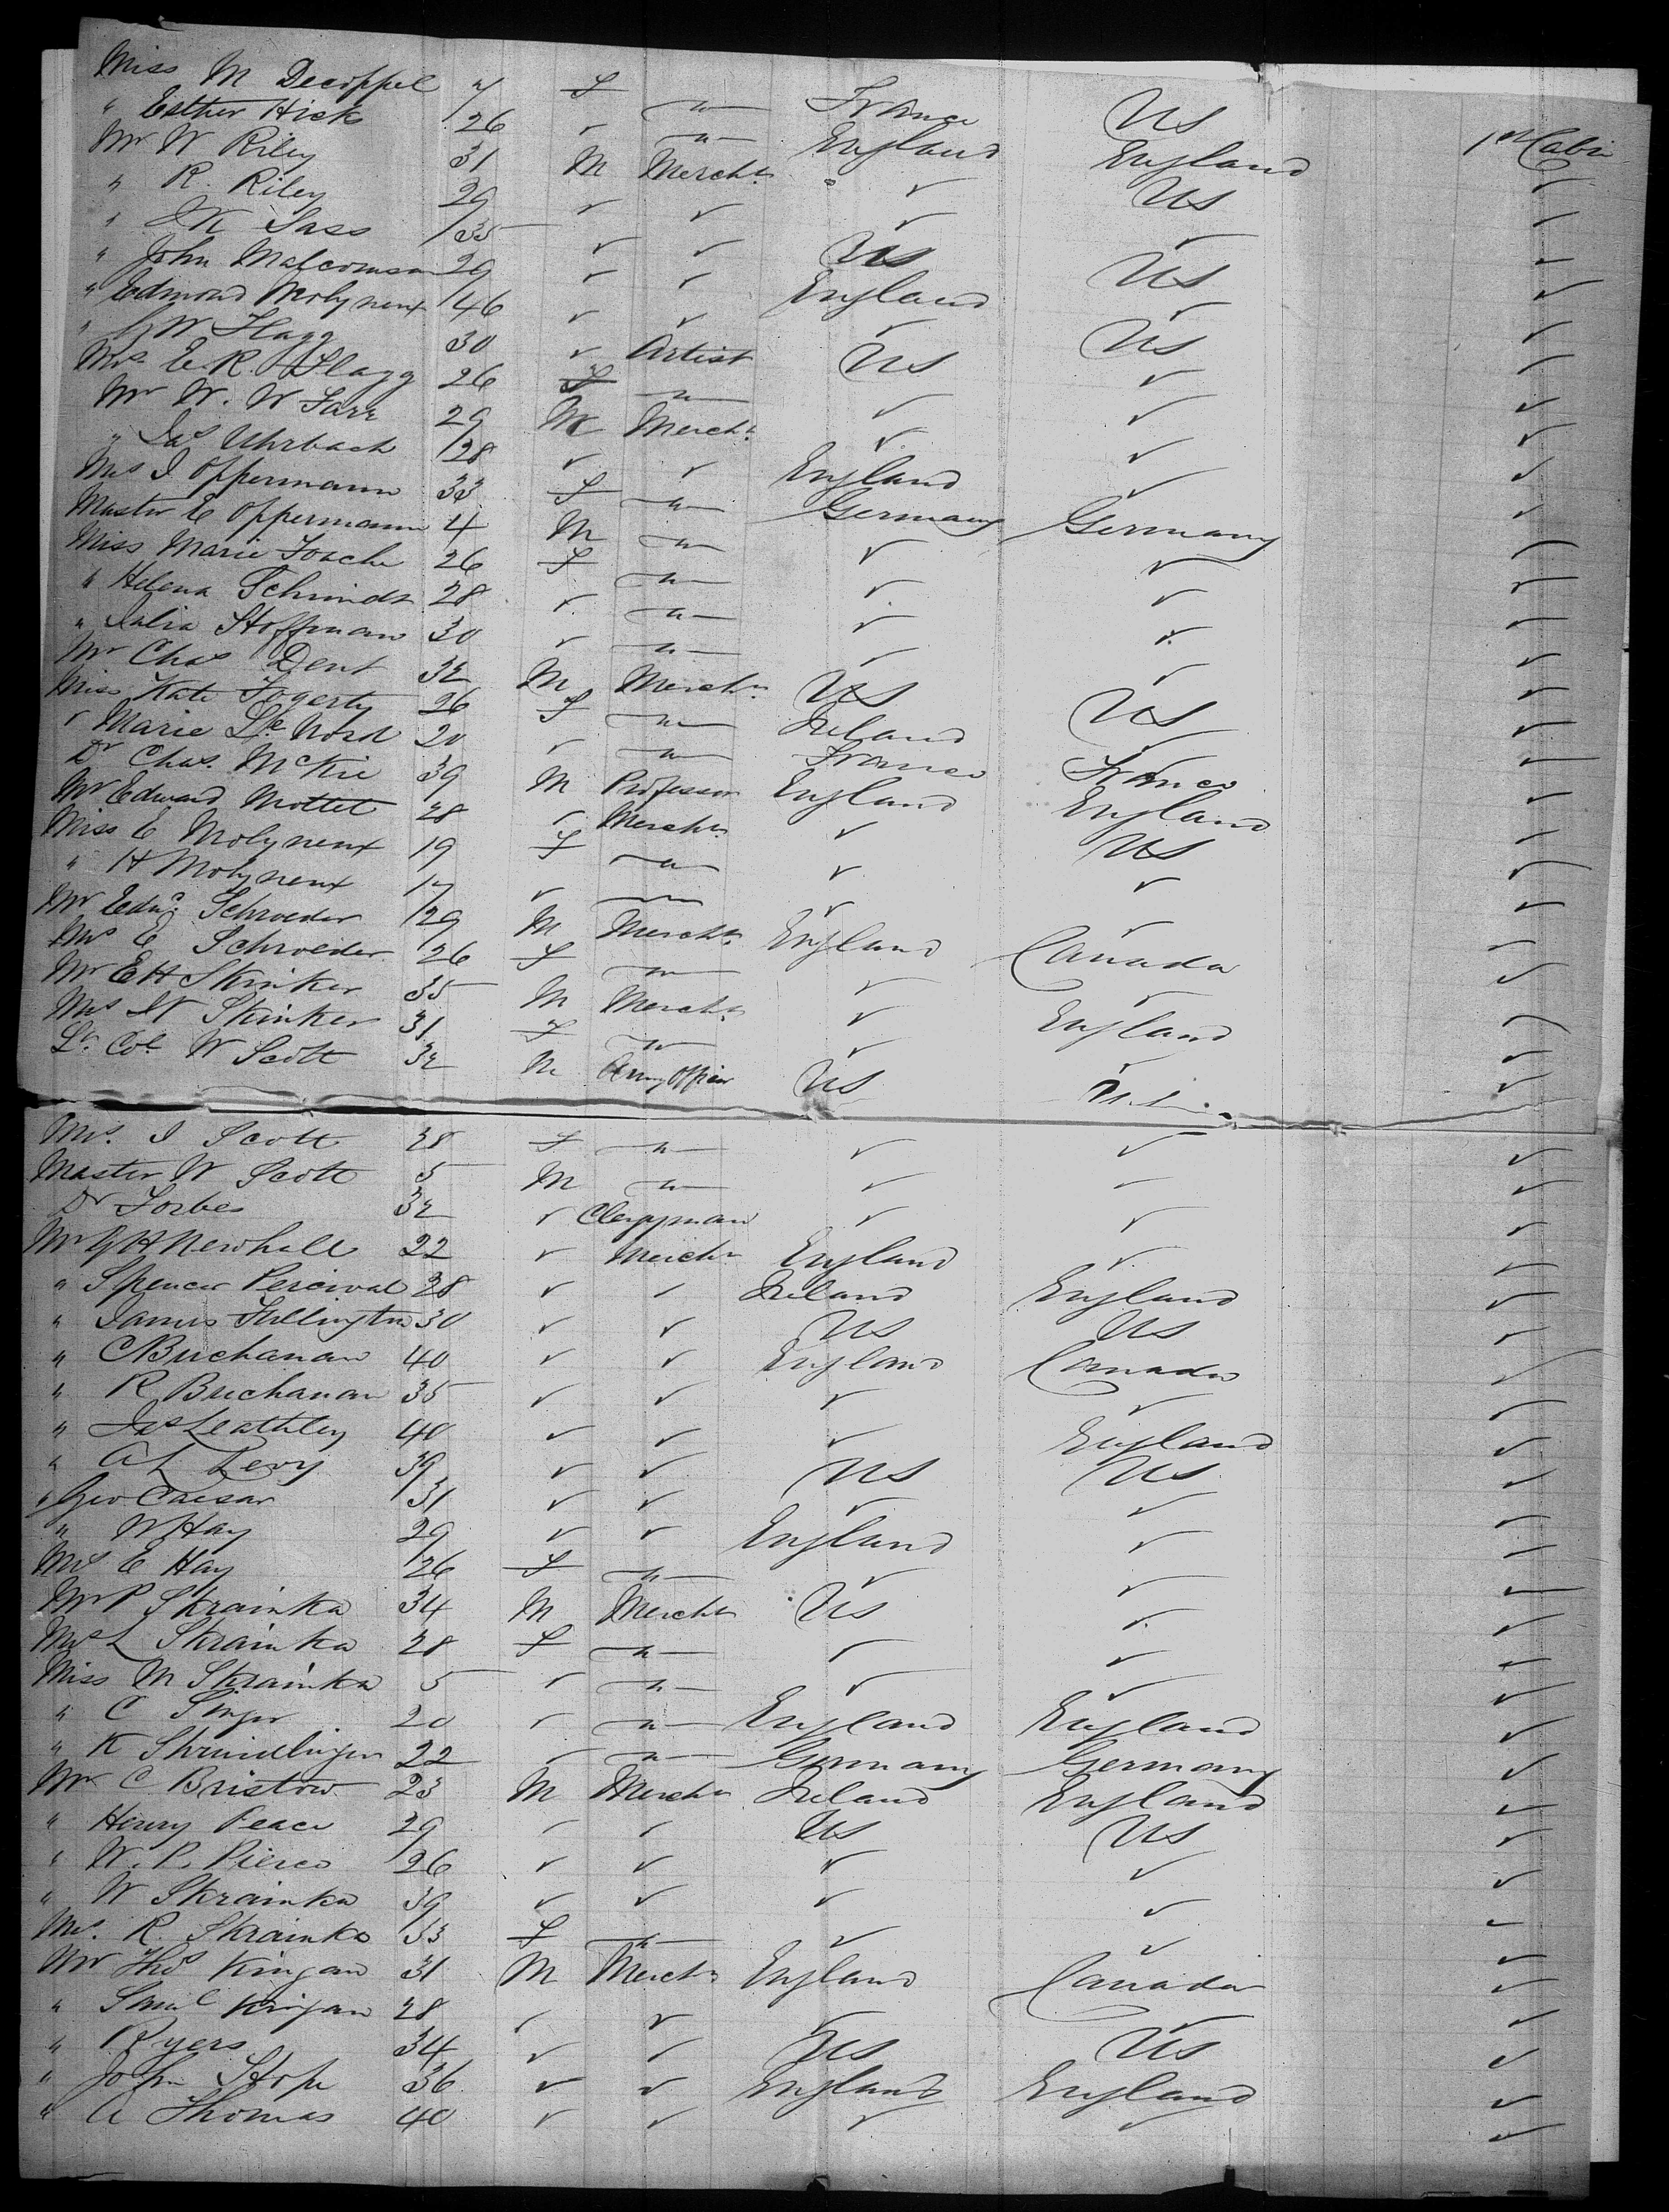 Miss M Decoppel 7 F — " — France US 1st Cabin
" Esther Hick 26 ✓ — " — England England ✓
Mr W Riley 31 M Mercht " ✓ US ✓
" R. Riley 29 ✓ ✓ ✓ ✓ ✓
" J K Sass 35 ✓ ✓ US US ✓
" John Malcomson 29 ✓ ✓ England ✓ ✓
" Edmond Molyneux 46 ✓ ✓ ✓ US ✓
" G W Flagg 30 ✓ Artist US ✓ ✓
Mrs E. R. Flagg 26 F — " — ✓ ✓ ✓
Mr W. W Farr 29 M Mercht ✓ ✓ ✓
" Jas Uhrbach 28 ✓ ✓ England ✓ ✓
Mrs I Oppermann 33 F — " — Germany Germany ✓
Master E Oppermann 4 M — " — ✓ ✓ ✓
Miss Marie 26 F — " — ✓ ✓ ✓
" Helena Schmidt 28 ✓ — " — ✓ ✓ ✓
" Hoffman 30 ✓ — " — ✓ ✓ ✓
Mr Chas Dent 32 M Mercht US US ✓
Miss Kate Fogerty 26 F — " — Ireland ✓ ✓
" Marie Le Nord 20 ✓ — " — France France ✓
Dr Chas. McKie 39 M Professor England England ✓
Mr Edward Mottet 28 ✓ Mercht ✓ US ✓
Miss E Molyneux 19 F — " — ✓ ✓ ✓
" H Molyneux 17 ✓ — " — ✓ ✓ ✓
Mr Edwd Schroeder 29 M Mercht England Canada ✓
Mrs E Schroeder 26 F — " — ✓ ✓ ✓
Mr E H Skinker 35 M Mercht ✓ England ✓
Mrs Skinker 31 F — " — ✓ ✓
Lt. Col W Scott 32 M Army Officer US ✓
Mrs. I Scott 28 F — " — ✓ ✓ ✓
Master W Scott 5 M — " — ✓ ✓ ✓
Dr Forbes 32 ✓ Clergyman ✓ ✓ ✓
Mr G H Newhall 22 ✓ Mercht England ✓ ✓
" Spencer Percival 28 ✓ ✓ Ireland England ✓
" James Fullington 30 ✓ ✓ US US ✓
" C Buchanan 40 ✓ ✓ England Canada ✓
" R Buchanan 35 ✓ ✓ ✓ ✓ ✓
" Jas Leathley 40 ✓ ✓ ✓ England ✓
" A L Levy 39 ✓ ✓ US US ✓
" Geo Caesar 31 ✓ ✓ ✓ ✓ ✓
" W Hay 29 ✓ ✓ England ✓ ✓
Mrs E Hay 26 F — " — ✓ ✓ ✓
Mr P Skrainka 34 M Mercht US ✓ ✓
Mrs L Skrainka 28 F — " — ✓ ✓ ✓
Miss M Skrainka 5 ✓ — " — ✓ ✓ ✓
" C Singer 20 ✓ — " — England England ✓
" K 22 ✓ — " — Germany Germany ✓
Mr C Bristow 23 M Mercht Ireland England ✓
" Henry Peace 29 ✓ ✓ US US ✓
" W. P. Pierce 26 ✓ ✓ ✓ ✓ ✓
" W Skrainka 39 ✓ ✓ ✓ ✓ ✓
Mrs. R. Skrainka 33 F — " — ✓ ✓ ✓
Mr Thos Kingan 31 M Mercht England Canada ✓
" Saml Kingan 28 ✓ ✓ ✓ ✓ ✓
" Ryers 34 ✓ ✓ US US ✓
" John Hope 36 ✓ ✓ England England ✓
" A Thomas 40 ✓ ✓ ✓ ✓ ✓